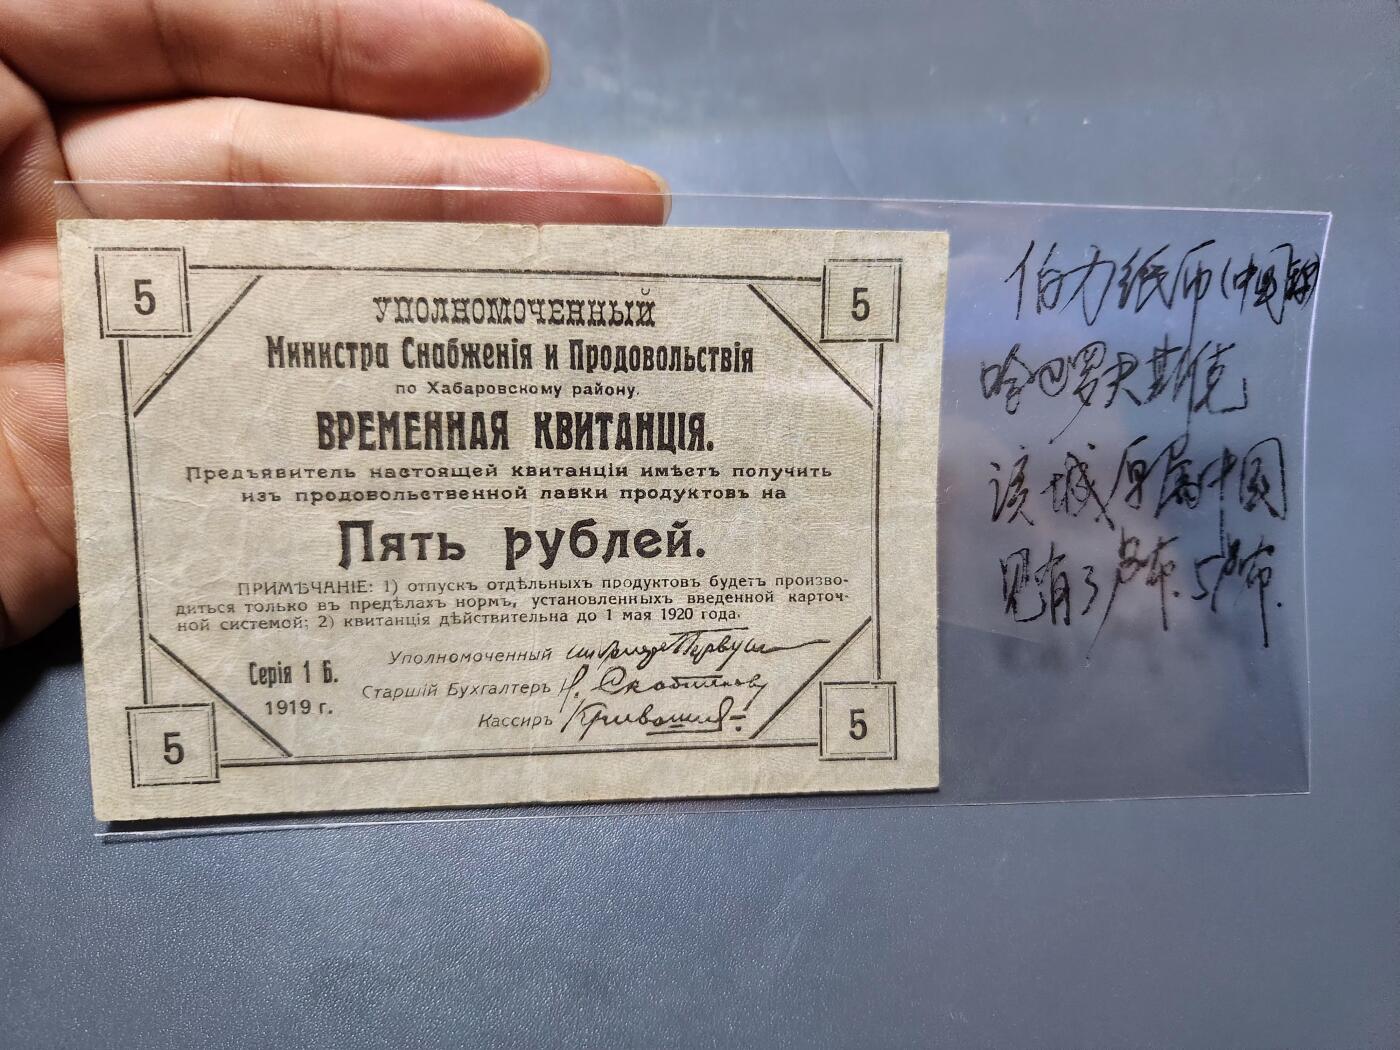 5
5
УПОЛНОМОЧЕННЫЙ
Министра Снабженія и Продовольствія
по Хабаровскому району.
ВРЕМЕННАЯ КВИТАНЦІЯ.
Предъявитель настоящей квитанціи имѣетъ получить
изъ продовольственной лавки продуктовъ на
Пять рублей.
ПРИМѢЧАНІЕ: 1) отпускъ отдѣльныхъ продуктовъ будетъ произво-
диться только въ предѣлахъ нормъ, установленныхъ введенной карточ-
ной системой; 2) квитанція дѣйствительна до 1 мая 1920 года.
Серія 1 Б.
1919 г.
Уполномоченный
Старшій Бухгалтеръ
Кассиръ
5
5
伯力纸币(中国
哈巴罗夫斯克
该城原属中国
见有3卢布.5卢布.